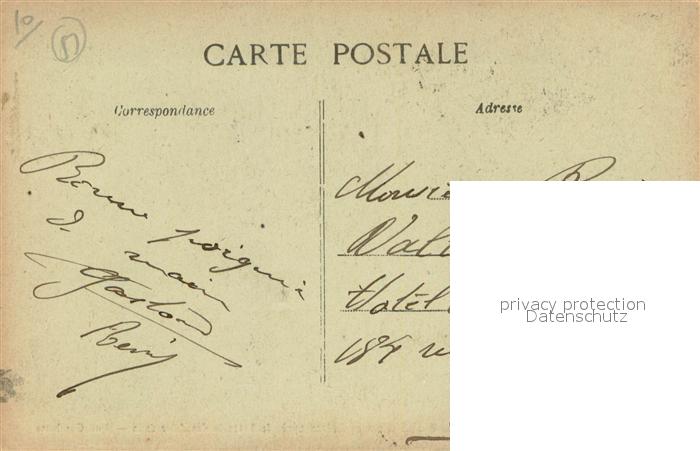 10/
51
CARTE POSTALE
Correspondance
Adresse
Bonne poignée
d. main
Gaston
Remy
Monsie
Val
Hotel
184 r
privacy protection
Datenschutz